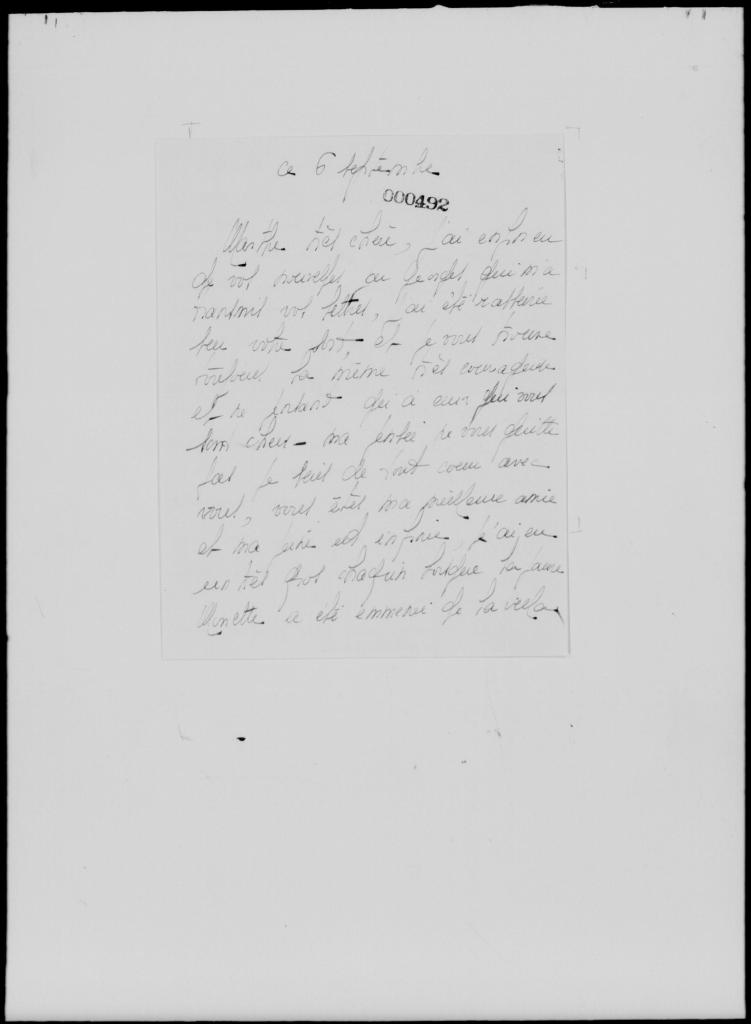 ce 6 septembre
000492
très chère, j'ai enfin eu
de vos nouvelles, qui m'a
transmis vos lettres, j'ai été
sur votre sort, et je vous trouve
toujours la même très courageuse
et ne pensant qu'à ceux qui vous
sont chers - ma pensée ne vous quitte
pas je suis de tout coeur avec
vous, vous êtes ma meilleure amie
et ma peine est infinie, j'ai eu
un très gros chagrin lorsque la pauvre
Minette a été emmenée de la